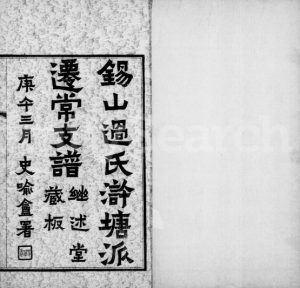 錫山過氏滸塘派
遷常支譜
繼述堂
藏板
庚午三月 史喻盦署